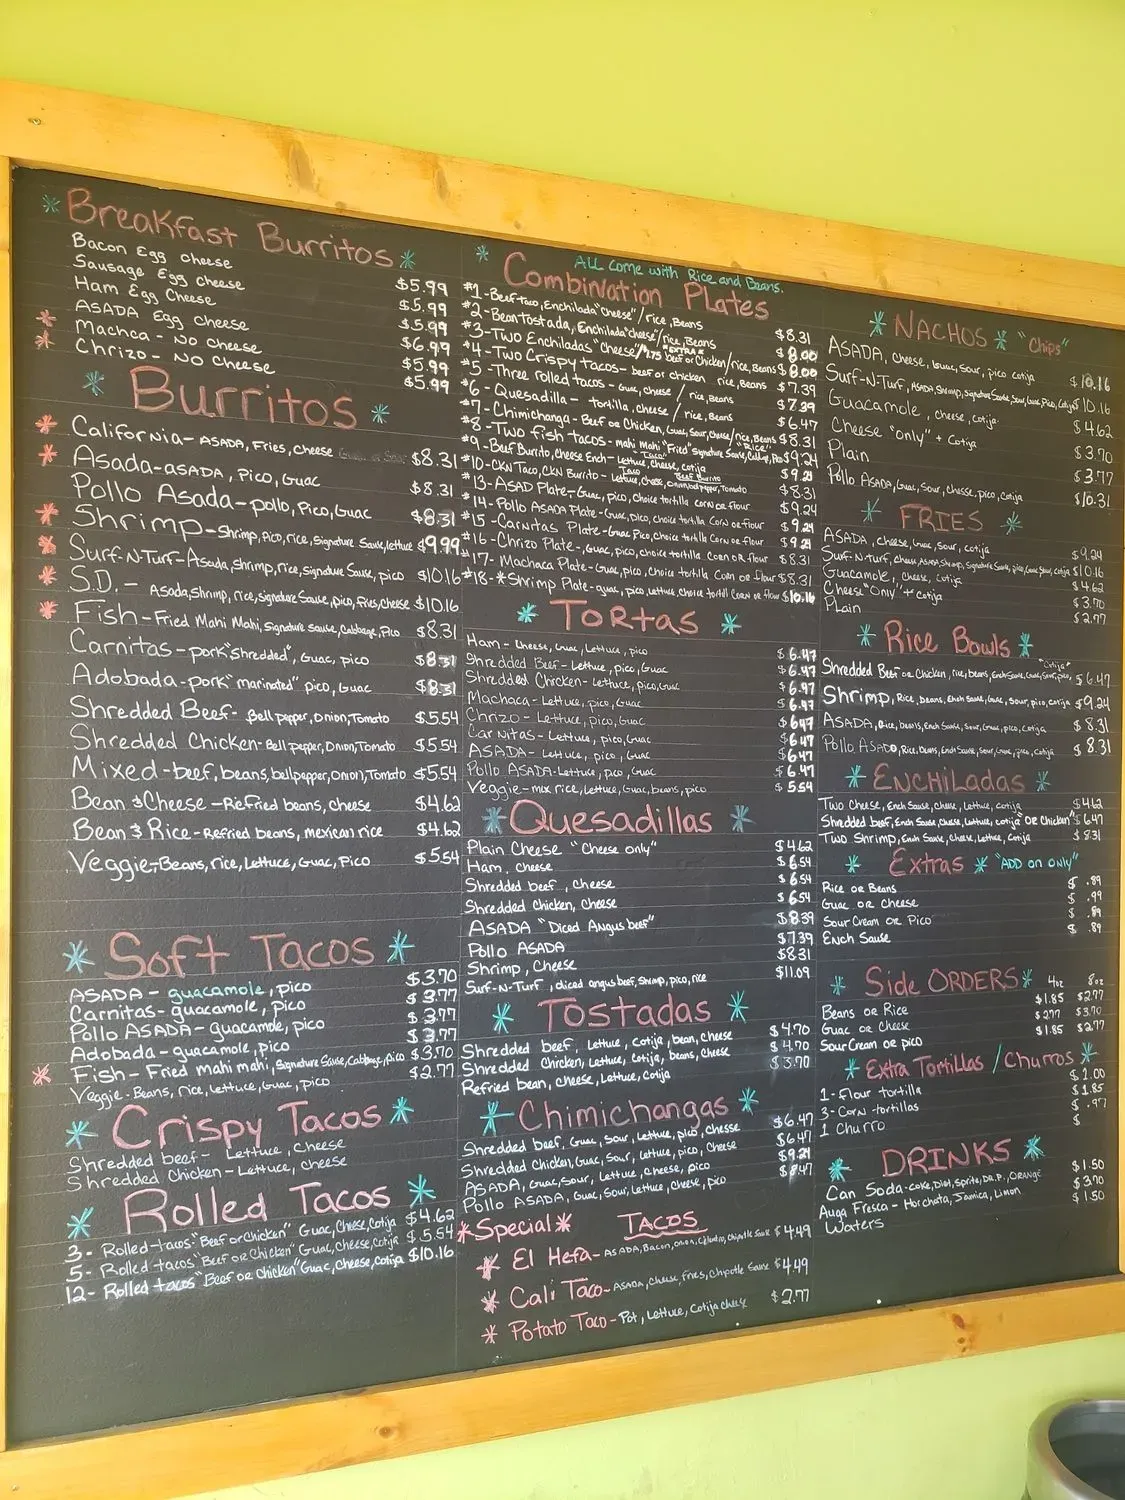 * Breakfast Burritos *
Bacon Egg cheese $5.99
Sausage Egg cheese $5.99
Ham Egg Cheese $5.99
ASADA Egg cheese $6.99
* Machca - NO cheese $5.99
* Chrizo - NO Cheese $5.99
* Burritos *
* California - ASADA, Fries, cheese $8.31
* Asada - ASADA, Pico, Guac $8.31
Pollo Asada - pollo, Pico, Guac $8.31
* Shrimp - Shrimp, Pico, rice, Signature Sause, lettuce $9.99
* Surf-N-Turf - Asada, Shrimp, rice, signature Sause, pico $10.16
* S.D. - Asada, Shrimp, rice, signature Sause, pico, fries, cheese $10.16
* Fish - Fried Mahi Mahi, Signature Sause, Cabbage, Pico $8.31
Carnitas - pork "Shredded", Guac, pico $8.31
Adobada - pork "marinated" pico, Guac $8.31
Shredded Beef - Bell pepper, Onion, Tomato $5.54
Shredded Chicken - Bell pepper, Onion, Tomato $5.54
Mixed - beef, beans, bellpepper, Onion, Tomato $5.54
Bean & Cheese - Riefried beans, cheese $4.62
Bean & Rice - Refried beans, mexican rice $4.62
Veggie - Beans, rice, Lettuce, Guac, Pico $5.54
* Soft Tacos *
ASADA - guacamole, pico $3.70
Carnitas - guacamole, pico $3.77
Pollo ASADA - guacamole, pico $3.77
Adobada - guacamole, pico $3.77
* Fish - Fried mahi mahi, Signature Sause, Cabbage, Pico $3.70
Veggie - Beans, rice, Lettuce, Guac, pico $2.77
* Crispy Tacos
Shredded beef - Lettuce, Cheese
Shredded Chicken - Lettuce, cheese
* Rolled Tacos *
3 - Rolled tacos "Beef or Chicken" Guac, Cheese, Cotija $4.62
5 - Rolled tacos "Beef or Chicken" Guac, Cheese, Cotija $5.54
12 - Rolled tacos "Beef or chicken" Guac, cheese, cotija $10.16
* ALL come with Rice and Beans.
Combination Plates
#1 - Beef taco, Enchilada "cheese" / rice, Beans $8.31
#2 - Bean Tostada, Enchilada "cheese" / rice, Beans $8.00
#3 - Two Enchiladas "Cheese" / 1.75 "EXTRA" beef or Chicken / rice, Beans $8.00
#4 - Two Crispy tacos - beef or chicken rice, Beans $7.39
#5 - Three rolled tacos - Guac, cheese / rice, Beans $7.39
#6 - Quesadilla - tortilla, cheese / rice, Beans $6.47
#7 - Chimichanga - Beef or Chicken, Guac, Sour, Cheese / rice, Beans $8.31
#8 - Two fish tacos - mahi Mahi "Fried" signature Sause, Cabbage, Pico $9.24
#9 - Beef Burrito, Cheese Ench - Lettuce, Cheese, cotija $9.24
#10 - CKN Taco, CKN Burrito - Lettuce, Chese, Onion, bell pepper, Tomato $8.31
#13 - ASAD Plate - Guac, pico, choice tortilla corn or flour $9.24
#14 - Pollo ASADA Plate - Guac, pico, choice tortilla Corn or flour $9.24
#15 - Carnitas Plate - Guac Pico, choice tortilla Corn or flour $9.24
#16 - Chrizo Plate - Guac, pico, choice tortilla Corn OR flour $8.31
#17 - Machaca Plate - Guac, pico, choice tortilla Corn or flour $8.31
#18 - *Shrimp Plate - guac, pico, Lettuce, choice tortill Corn or flour $10.16
* Tortas *
Ham - cheese, Guac, Lettuce, pico $6.47
Shredded Beef - Lettuce, pico, Guac $6.47
Shredded Chicken - Lettuce, pico, Guac $6.47
Machaca - Lettuce, pico, Guac $6.47
Chrizo - Lettuce, pico, Guac $6.47
Carnitas - Lettuce, pico, Guac $6.47
ASADA - Lettuce, pico, Guac $6.47
Pollo ASADA - Lettuce, pico, Guac $6.47
Veggie - mix rice, Lettuce, Guac, beans, pico $5.54
* Quesadillas *
Plain Cheese "Cheese only" $4.62
Ham, cheese $6.54
Shredded beef, Cheese $6.54
Shredded chicken, Cheese $6.54
ASADA "Diced Angus beef" $8.39
Pollo ASADA $7.39
Shrimp, Cheese $8.31
Surf-N-Turf, diced angus beef, Shrimp, pico, rice $11.09
* Tostadas *
Shredded beef, Lettuce, cotija, bean, cheese $4.70
Shredded Chicken, Lettuce, cotija, beans, cheese $4.70
Refried bean, cheese, Lettuce, Cotija $3.70
* Chimichangas *
Shredded beef, Guac, Sour, Lettuce, pico, Chesse $6.47
Shredded Chicken, Guac, Sour, Lettuce, pico, Cheese $6.47
ASADA, Guac, Sour, Lettuce, Cheese, pico $9.24
Pollo ASADA, Guac, Sour, Lettuce, Cheese, pico $8.47
* Special * TACOS
* El Hefa - ASADA, Bacon, onion, Cilantro, chipotle Sause $4.49
* Cali Taco - ASADA, Cheese, Fries, Chipotle Sause $4.49
* Potato Taco - Pot, Lettuce, Cotija Chees $2.77
* NACHOS * "Chips"
ASADA, cheese, Guac, Sour, pico cotija $10.16
Surf-N-Turf, ASADA, Shrimp, Signature Sause, Sour, Guac, Pico, Cotija $10.16
Guacamole, cheese, cotija $4.62
Cheese "only" + Cotija $3.70
Plain $3.77
Pollo ASADA, Guac, Sour, Chesse, pico, Cotija $10.31
* FRIES *
ASADA, Cheese, Guac, Sour, cotija $9.24
Surf-N-turf, Cheese, ASADA, Shrimp, Signature Sause, pico, Guac, Sour, cotija $10.16
Guacamole, Cheese, Cotija $4.62
Cheese "Only" + Cotija $3.70
Plain $2.77
* Rice Bowls *
"Cotija"
Shredded Beef or Chicken, rice, beans, Ench Sause, Guac, Sour, pico, $6.47
Shrimp, Rice, Beans, Ench Sause, Guac, Sour, pico, Cotija $9.24
ASADA, Rice, beans, Ench Sause, Sour, Guac, pico, Cotija $8.31
Pollo ASADO, Rice, Beans, Ench Sause, Sour, Guac, pico, Cotija $8.31
* ENCHILADAS *
Two Cheese, Ench Sause, Cheese, Lettuce, cotija $4.62
Shredded beef, Ench Sause, Cheese, Lettuce, cotija "OR Chicken" $6.47
Two Shrimp, Ench Sause, Cheese, Lettuce, Cotija $8.31
* Extras * "ADD on only"
Rice or Beans $.89
Guac or Cheese $.99
Sour Cream or Pico $.89
Ench Sause $.89
* Side ORDERS * 4oz 8oz
Beans or Rice $1.85 $2.77
Guac or Cheese $2.77 $3.70
Sour Cream or pico $1.85 $2.77
* Extra Tortillas / Churros *
1 - Flour tortilla $1.00
3 - Corn tortillas $1.85
1 Churro $.97
$
* DRINKS *
Can Soda - Coke, Diet, Sprite, DR.P, ORANGE $1.50
Auga Fresca - Horchata, Jamica, Limon $3.70
Waters $1.50